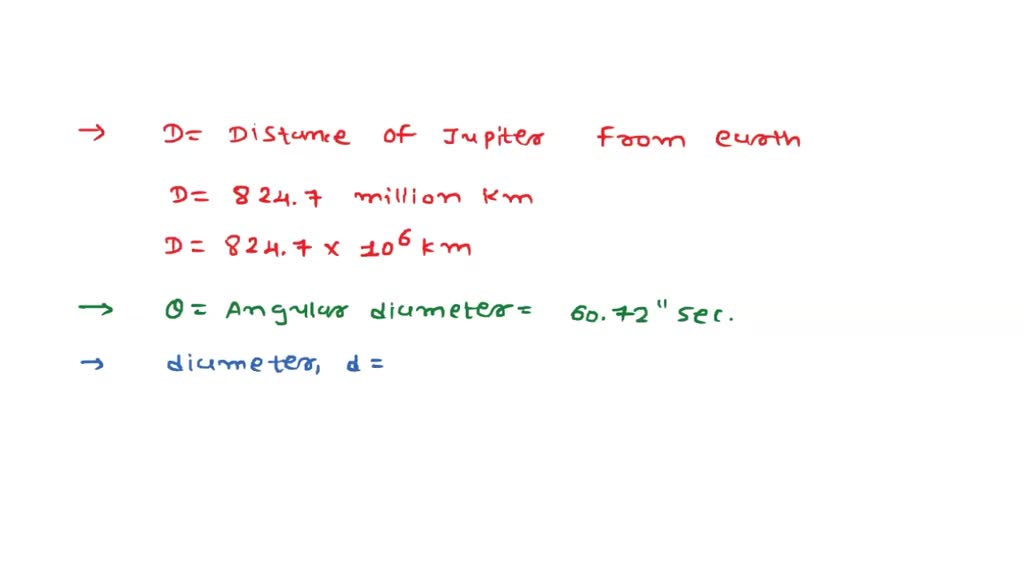 → D= Distance of Jupiter from earth
D= 824.7 million km
D= 824.7 x 10⁶ km
→ θ= Angular diameter= 60.72" sec.
→ diameter, d=